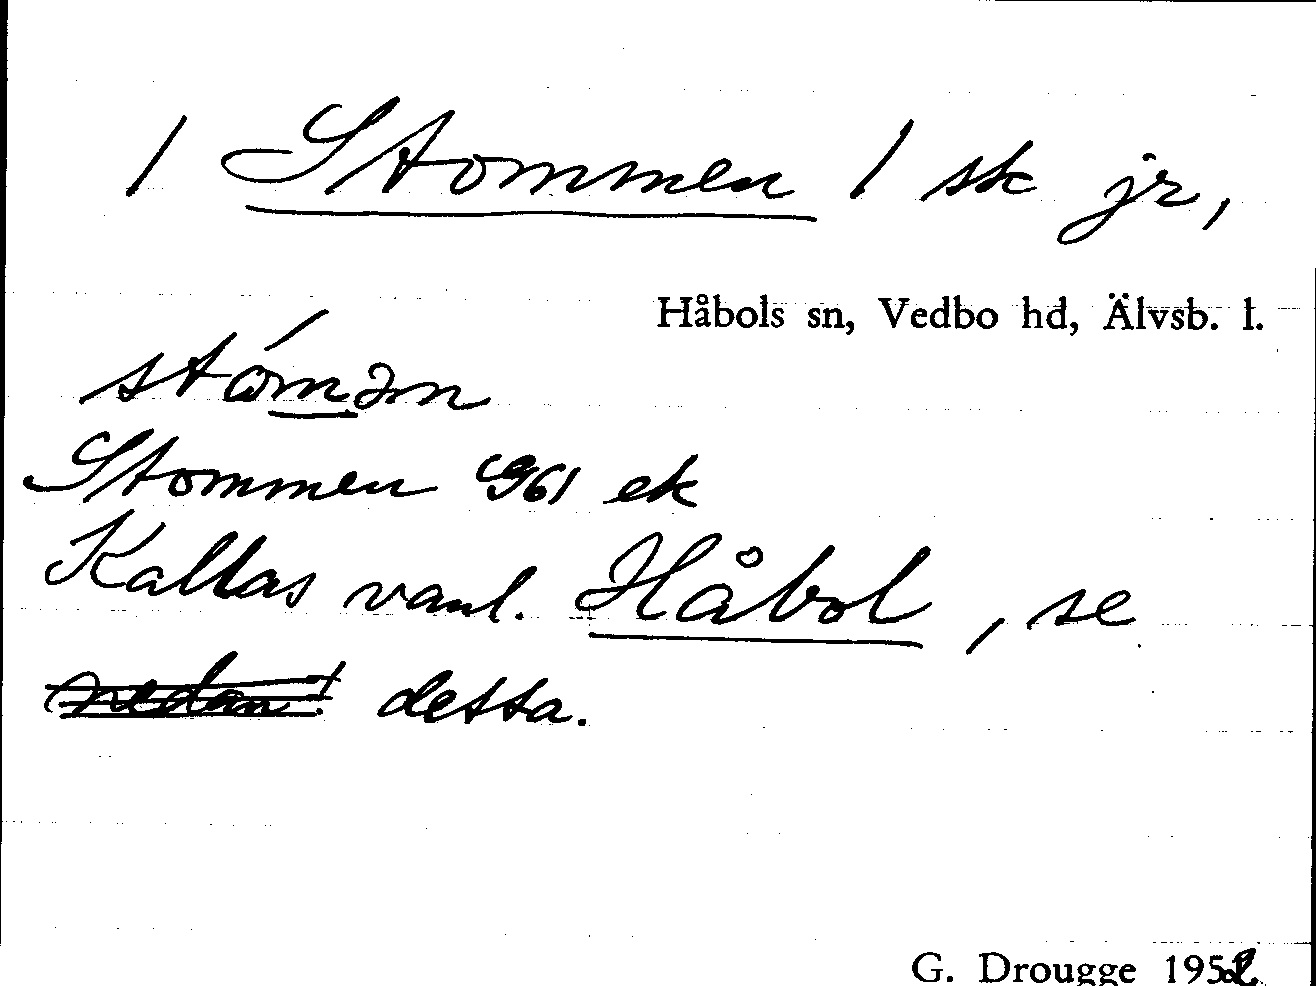 / Stommen / sk jr,
Håbols sn, Vedbo hd, Älvsb. l.
stómən
Stommen 961 ek
Kallas vanl. Håbol, se
nedan! detta.
G. Drougge 1952